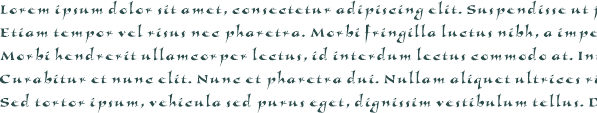 Lorem ipsum dolor sit amet, consectetur adipiscing elit. Suspendisse ut
Etiam tempor vel risus nec pharetra. Morbi fringilla luctus nibh, a impe
Morbi hendrerit ullamcorper lectus, id interdum lectus commodo at. In
Curabitur et nunc elit. Nunc et pharetra dui. Nullam aliquet ultrices ri
Sed tortor ipsum, vehicula sed purus eget, dignissim vestibulum tellus. D